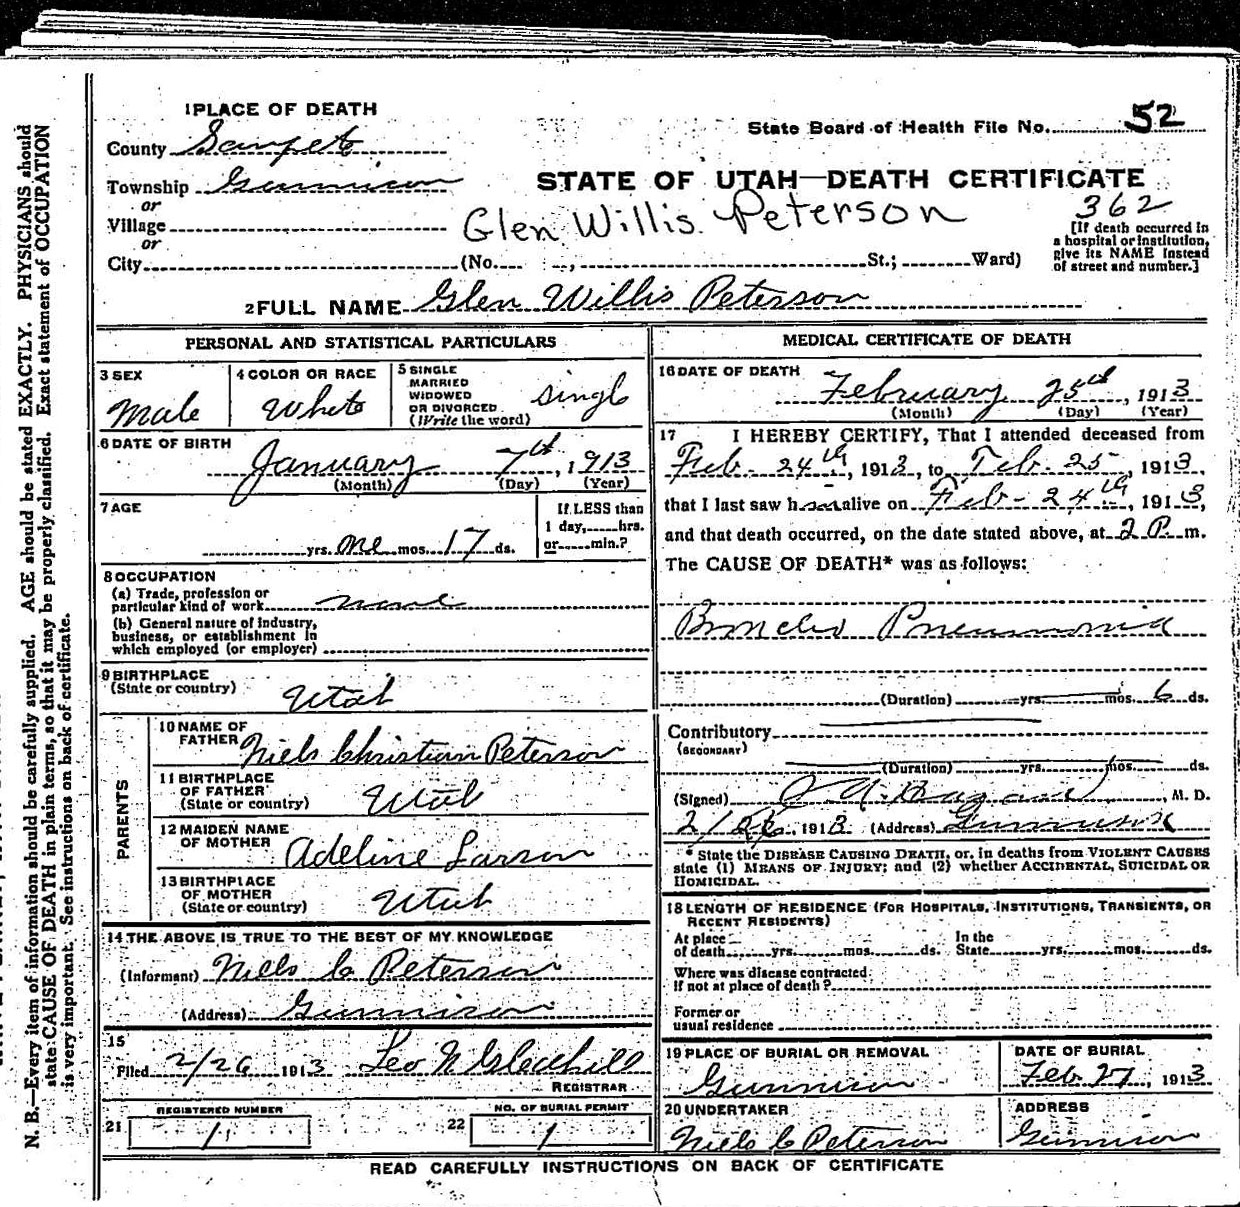 1 PLACE OF DEATH
County Sanpete
Township Gunnison
or
Village
or
City (No. St.; Ward)
State Board of Health File No. 52
STATE OF UTAH—DEATH CERTIFICATE
Glen Willis Peterson
362
[If death occurred in
a hospital or institution,
give its NAME instead
of street and number.]
2 FULL NAME Glen Willis Peterson
PERSONAL AND STATISTICAL PARTICULARS
3 SEX
Male
4 COLOR OR RACE
White
5 SINGLE
MARRIED
WIDOWED
OR DIVORCED
(Write the word)
Single
6 DATE OF BIRTH
January 7th, 1913
(Month) (Day) (Year)
7 AGE
yrs. one mos. 17 ds.
If LESS than
1 day, hrs.
or min.?
8 OCCUPATION
(a) Trade, profession or
particular kind of work none
(b) General nature of industry,
business, or establishment in
which employed (or employer)
9 BIRTHPLACE
(State or country) Utah
PARENTS
10 NAME OF
FATHER Niels Christian Peterson
11 BIRTHPLACE
OF FATHER
(State or country) Utah
12 MAIDEN NAME
OF MOTHER Adeline Larson
13 BIRTHPLACE
OF MOTHER
(State or country) Utah
14 THE ABOVE IS TRUE TO THE BEST OF MY KNOWLEDGE
(Informant) Niels C Peterson
(Address) Gunnison
15
Filed 2/26 1913 Leo N Gledhill
REGISTRAR
REGISTERED NUMBER
21 1
NO. OF BURIAL PERMIT
22 1
MEDICAL CERTIFICATE OF DEATH
16 DATE OF DEATH
February 25th, 1913
(Month) (Day) (Year)
17 I HEREBY CERTIFY, That I attended deceased from
Feb. 24th, 1913, to Feb. 25, 1913,
that I last saw h alive on Feb - 24th, 1913,
and that death occurred, on the date stated above, at 2 P. m.
The CAUSE OF DEATH* was as follows:
Broncho Pneumonia
(Duration) yrs. mos. 6 ds.
Contributory
(SECONDARY)
(Duration) yrs. mos. ds.
(Signed) M. D.
2/26, 1913 (Address) Gunnison
* State the DISEASE CAUSING DEATH, or, in deaths from VIOLENT CAUSES
state (1) MEANS OF INJURY; and (2) whether ACCIDENTAL, SUICIDAL OR
HOMICIDAL.
18 LENGTH OF RESIDENCE (FOR HOSPITALS, INSTITUTIONS, TRANSIENTS, OR
RECENT RESIDENTS)
At place
of death yrs. mos. ds.
In the
State yrs. mos. ds.
Where was disease contracted
if not at place of death?
Former or
usual residence
19 PLACE OF BURIAL OR REMOVAL
Gunnison
DATE OF BURIAL
Feb. 27, 1913
20 UNDERTAKER
Niels C Peterson
ADDRESS
Gunnison
READ CAREFULLY INSTRUCTIONS ON BACK OF CERTIFICATE
N. B.—Every item of information should be carefully supplied. AGE should be stated EXACTLY. PHYSICIANS should
state CAUSE OF DEATH in plain terms, so that it may be properly classified. Exact statement of OCCUPATION
is very important. See instructions on back of certificate.